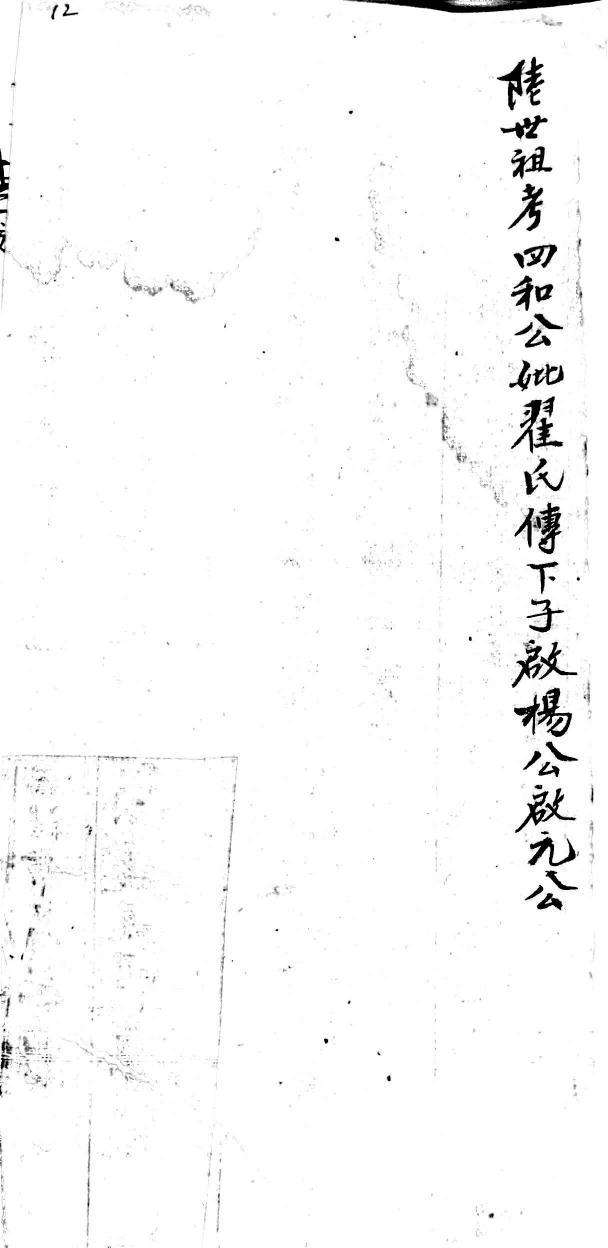 12
陸世祖考四和公妣翟氏傳下子啟楊公啟元公